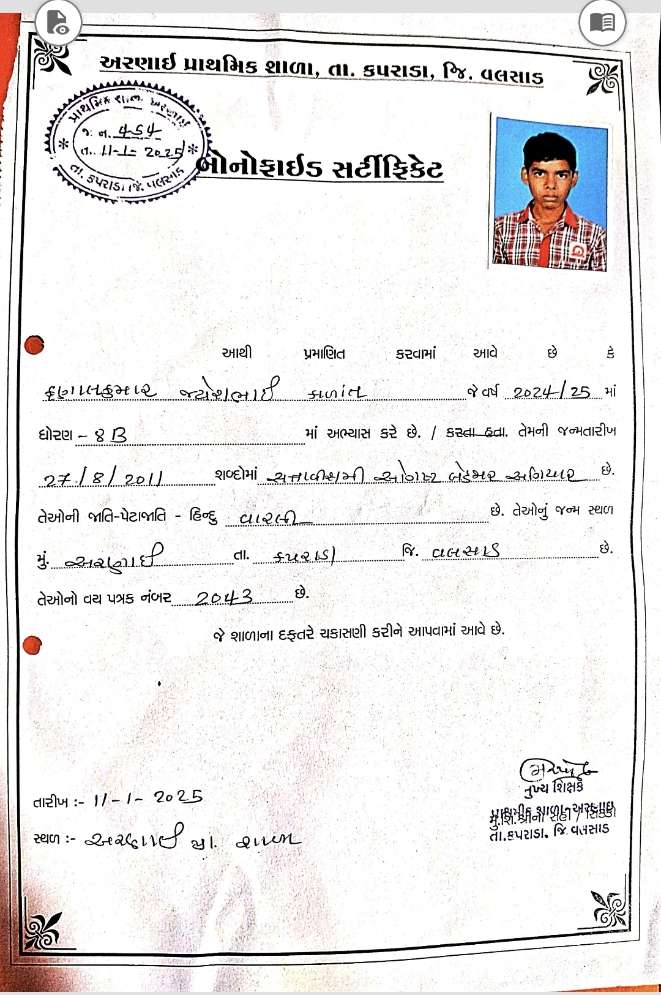 અરણાઈ પ્રાથમિક શાળા, તા. કપરાડા, જિ. વલસાડ
પ્રાથમિક શાળા અરણાઈ
જા. નં. 454
તા. 11-1-2025
તા. કપરાડા જિ. વલસાડ
બોનોફાઈડ સર્ટીફિકેટ
આથી પ્રમાણિત કરવામાં આવે છે કે
કુણાલકુમાર જયેશભાઈ જે વર્ષ 2024/25 માં
ધોરણ - 8 B માં અભ્યાસ કરે છે. / કરતા હતા. તેમની જન્મતારીખ
27/8/2011 શબ્દોમાં સત્તાવીસમી ઓગષ્ટ બેહજાર અગિયાર છે.
તેઓની જાતિ-પેટાજાતિ - હિન્દુ વારલી છે. તેઓનું જન્મ સ્થળ
મું. અરણાઈ તા. કપરાડા જિ. વલસાડ છે.
તેઓનો વય પત્રક નંબર 2043 છે.
જે શાળાના દફતરે ચકાસણી કરીને આપવામાં આવે છે.
તારીખ :- 11-1-2025
સ્થળ :- અરણાઈ પ્રા. શાળા
મુખ્ય શિક્ષક
પ્રાથમીક શાળા-અરણાઇ
મું.શિ.શ્રીની સહી / સિક્કો
તા.કપરાડા, જિ. વલસાડ